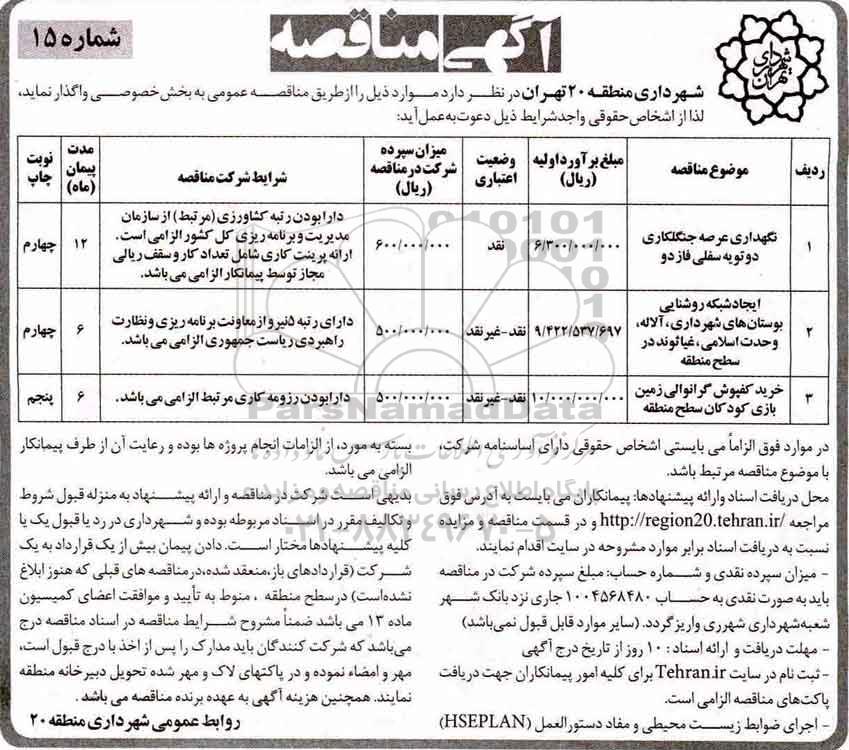 شماره ۱۵
آگهی مناقصه
شهرداری تهران
شهرداری منطقه ۲۰ تهران در نظر دارد موارد ذیل را از طریق مناقصه عمومی به بخش خصوصی واگذار نماید،
لذا از اشخاص حقوقی واجد شرایط ذیل دعوت به عمل آید:
ردیف	موضوع مناقصه	مبلغ برآورد اولیه (ریال)	وضعیت اعتباری	میزان سپرده شرکت در مناقصه (ریال)	شرایط شرکت مناقصه	مدت پیمان (ماه)	نوبت چاپ
۱	نگهداری عرصه جنگلکاری دوتویه سفلی فاز دو	۶/۳۰۰/۰۰۰/۰۰۰	نقد	۶۰۰/۰۰۰/۰۰۰	دارا بودن رتبه کشاورزی (مرتبط) از سازمان مدیریت و برنامه ریزی کل کشور الزامی است. ارائه پرینت کاری شامل تعداد کار و سقف ریالی مجاز توسط پیمانکار الزامی می باشد.	۱۲	چهارم
۲	ایجاد شبکه روشنایی بوستان های شهرداری، آلاله، وحدت اسلامی، غیاثوند در سطح منطقه	۹/۴۲۲/۵۳۷/۶۹۷	نقد-غیر نقد	۵۰۰/۰۰۰/۰۰۰	دارای رتبه ۵ نیرو از معاونت برنامه ریزی و نظارت راهبردی ریاست جمهوری الزامی می باشد.	۶	چهارم
۳	خرید کفپوش گرانوالی زمین بازی کودکان سطح منطقه	۱۰/۰۰۰/۰۰۰/۰۰۰	نقد-غیر نقد	۵۰۰/۰۰۰/۰۰۰	دارا بودن رزومه کاری مرتبط الزامی می باشد.	۶	پنجم
در موارد فوق الزاماً می بایستی اشخاص حقوقی دارای اساسنامه شرکت،
با موضوع مناقصه مرتبط باشد.
محل دریافت اسناد وارائه پیشنهادها: پیمانکاران می بایست به آدرس فوق
مراجعه http://region20.tehran.ir/ و در قسمت مناقصه و مزایده
نسبت به دریافت اسناد برابر موارد مشروحه در سایت اقدام نمایند.
- میزان سپرده نقدی و شماره حساب: مبلغ سپرده شرکت در مناقصه
باید به صورت نقدی به حساب ۱۰۰۴۵۶۸۴۸۰ جاری نزد بانک شهر
شعبه شهرداری شهرری واریز گردد. (سایر موارد قابل قبول نمی باشد)
- مهلت دریافت و ارائه اسناد: ۱۰ روز از تاریخ درج آگهی
- ثبت نام در سایت Tehran.ir برای کلیه امور پیمانکاران جهت دریافت
پاکت های مناقصه الزامی است.
- اجرای ضوابط زیست محیطی و مفاد دستورالعمل (HSEPLAN)
بسته به مورد، از الزامات انجام پروژه ها بوده و رعایت آن از طرف پیمانکار
الزامی می باشد.
بدیهی است شرکت در مناقصه و ارائه پیشنهاد به منزله قبول شروط
و تکالیف مقرر در اسناد مربوطه بوده و شهرداری در رد یا قبول یک یا
کلیه پیشنهادها مختار است. دادن پیمان بیش از یک قرارداد به یک
شرکت (قراردادهای باز، منعقد شده، در مناقصه های قبلی که هنوز ابلاغ
نشده است) در سطح منطقه ، منوط به تأیید و موافقت اعضای کمیسیون
ماده ۱۳ می باشد ضمناً مشروح شرایط مناقصه در اسناد مناقصه درج
می باشد که شرکت کنندگان باید مدارک را پس از اخذ با درج قبول است،
مهر و امضاء نموده و در پاکتهای لاک و مهر شده تحویل دبیرخانه منطقه
نمایند. همچنین هزینه آگهی به عهده برنده مناقصه می باشد .
روابط عمومی شهرداری منطقه ۲۰
ParsNamadData
پایگاه اطلاع رسانی مناقصه و مزایده
۰۲۱-۸۸۳۴۹۶۷۰-۵